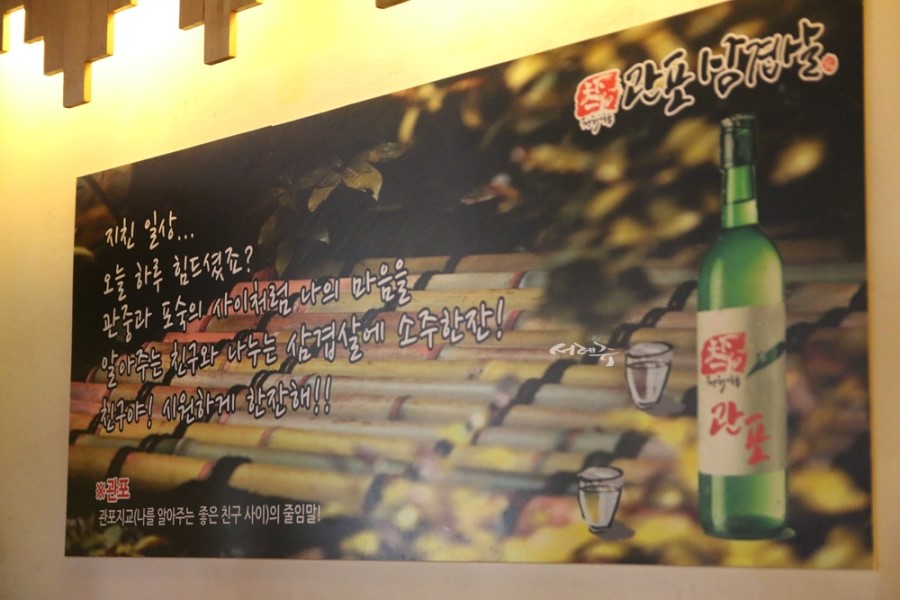 관포 삼겹살
지친 일상...
오늘 하루 힘드셨죠?
관중과 포숙의 사이처럼 나의 마음을
알아주는 친구와 나누는 삼겹살에 소주한잔!
친구야! 시원하게 한잔해!!
관포
※관포
관포지교(나를 알아주는 좋은 친구 사이)의 줄임말!